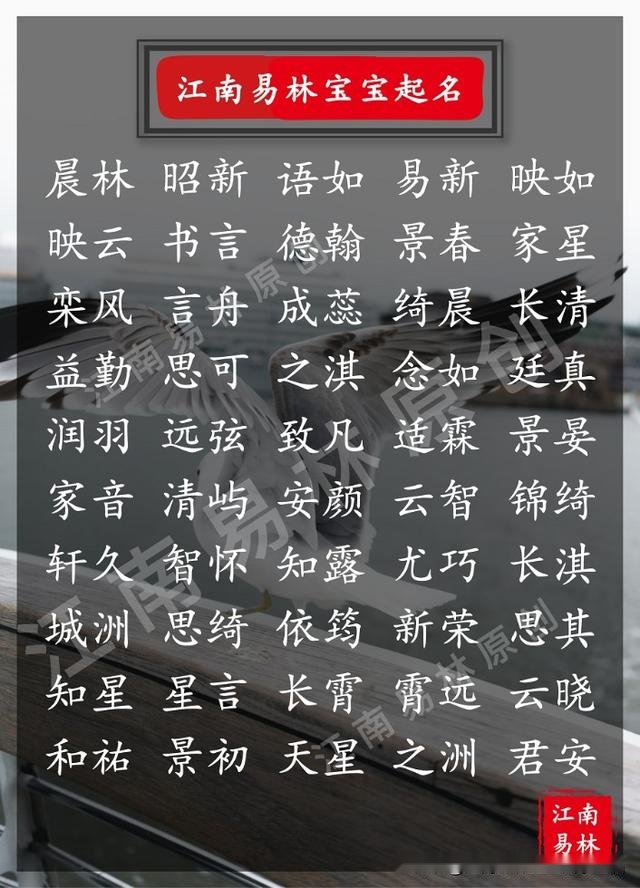 江南易林宝宝起名
晨林 昭新 语如 易新 映如
映云 书言 德翰 景春 家星
栾风 言舟 成蕊 绮晨 长清
益勤 思可 之淇 念如 廷真
润羽 远弦 致凡 适霖 景晏
家音 清屿 安颜 云智 锦绮
轩久 智怀 知露 尤巧 长淇
城洲 思绮 依筠 新荣 思其
知星 星言 长霄 霄远 云晓
和祐 景初 天星 之洲 君安
江南易林原创
江南易林原创
江南易林原创
江南
易林